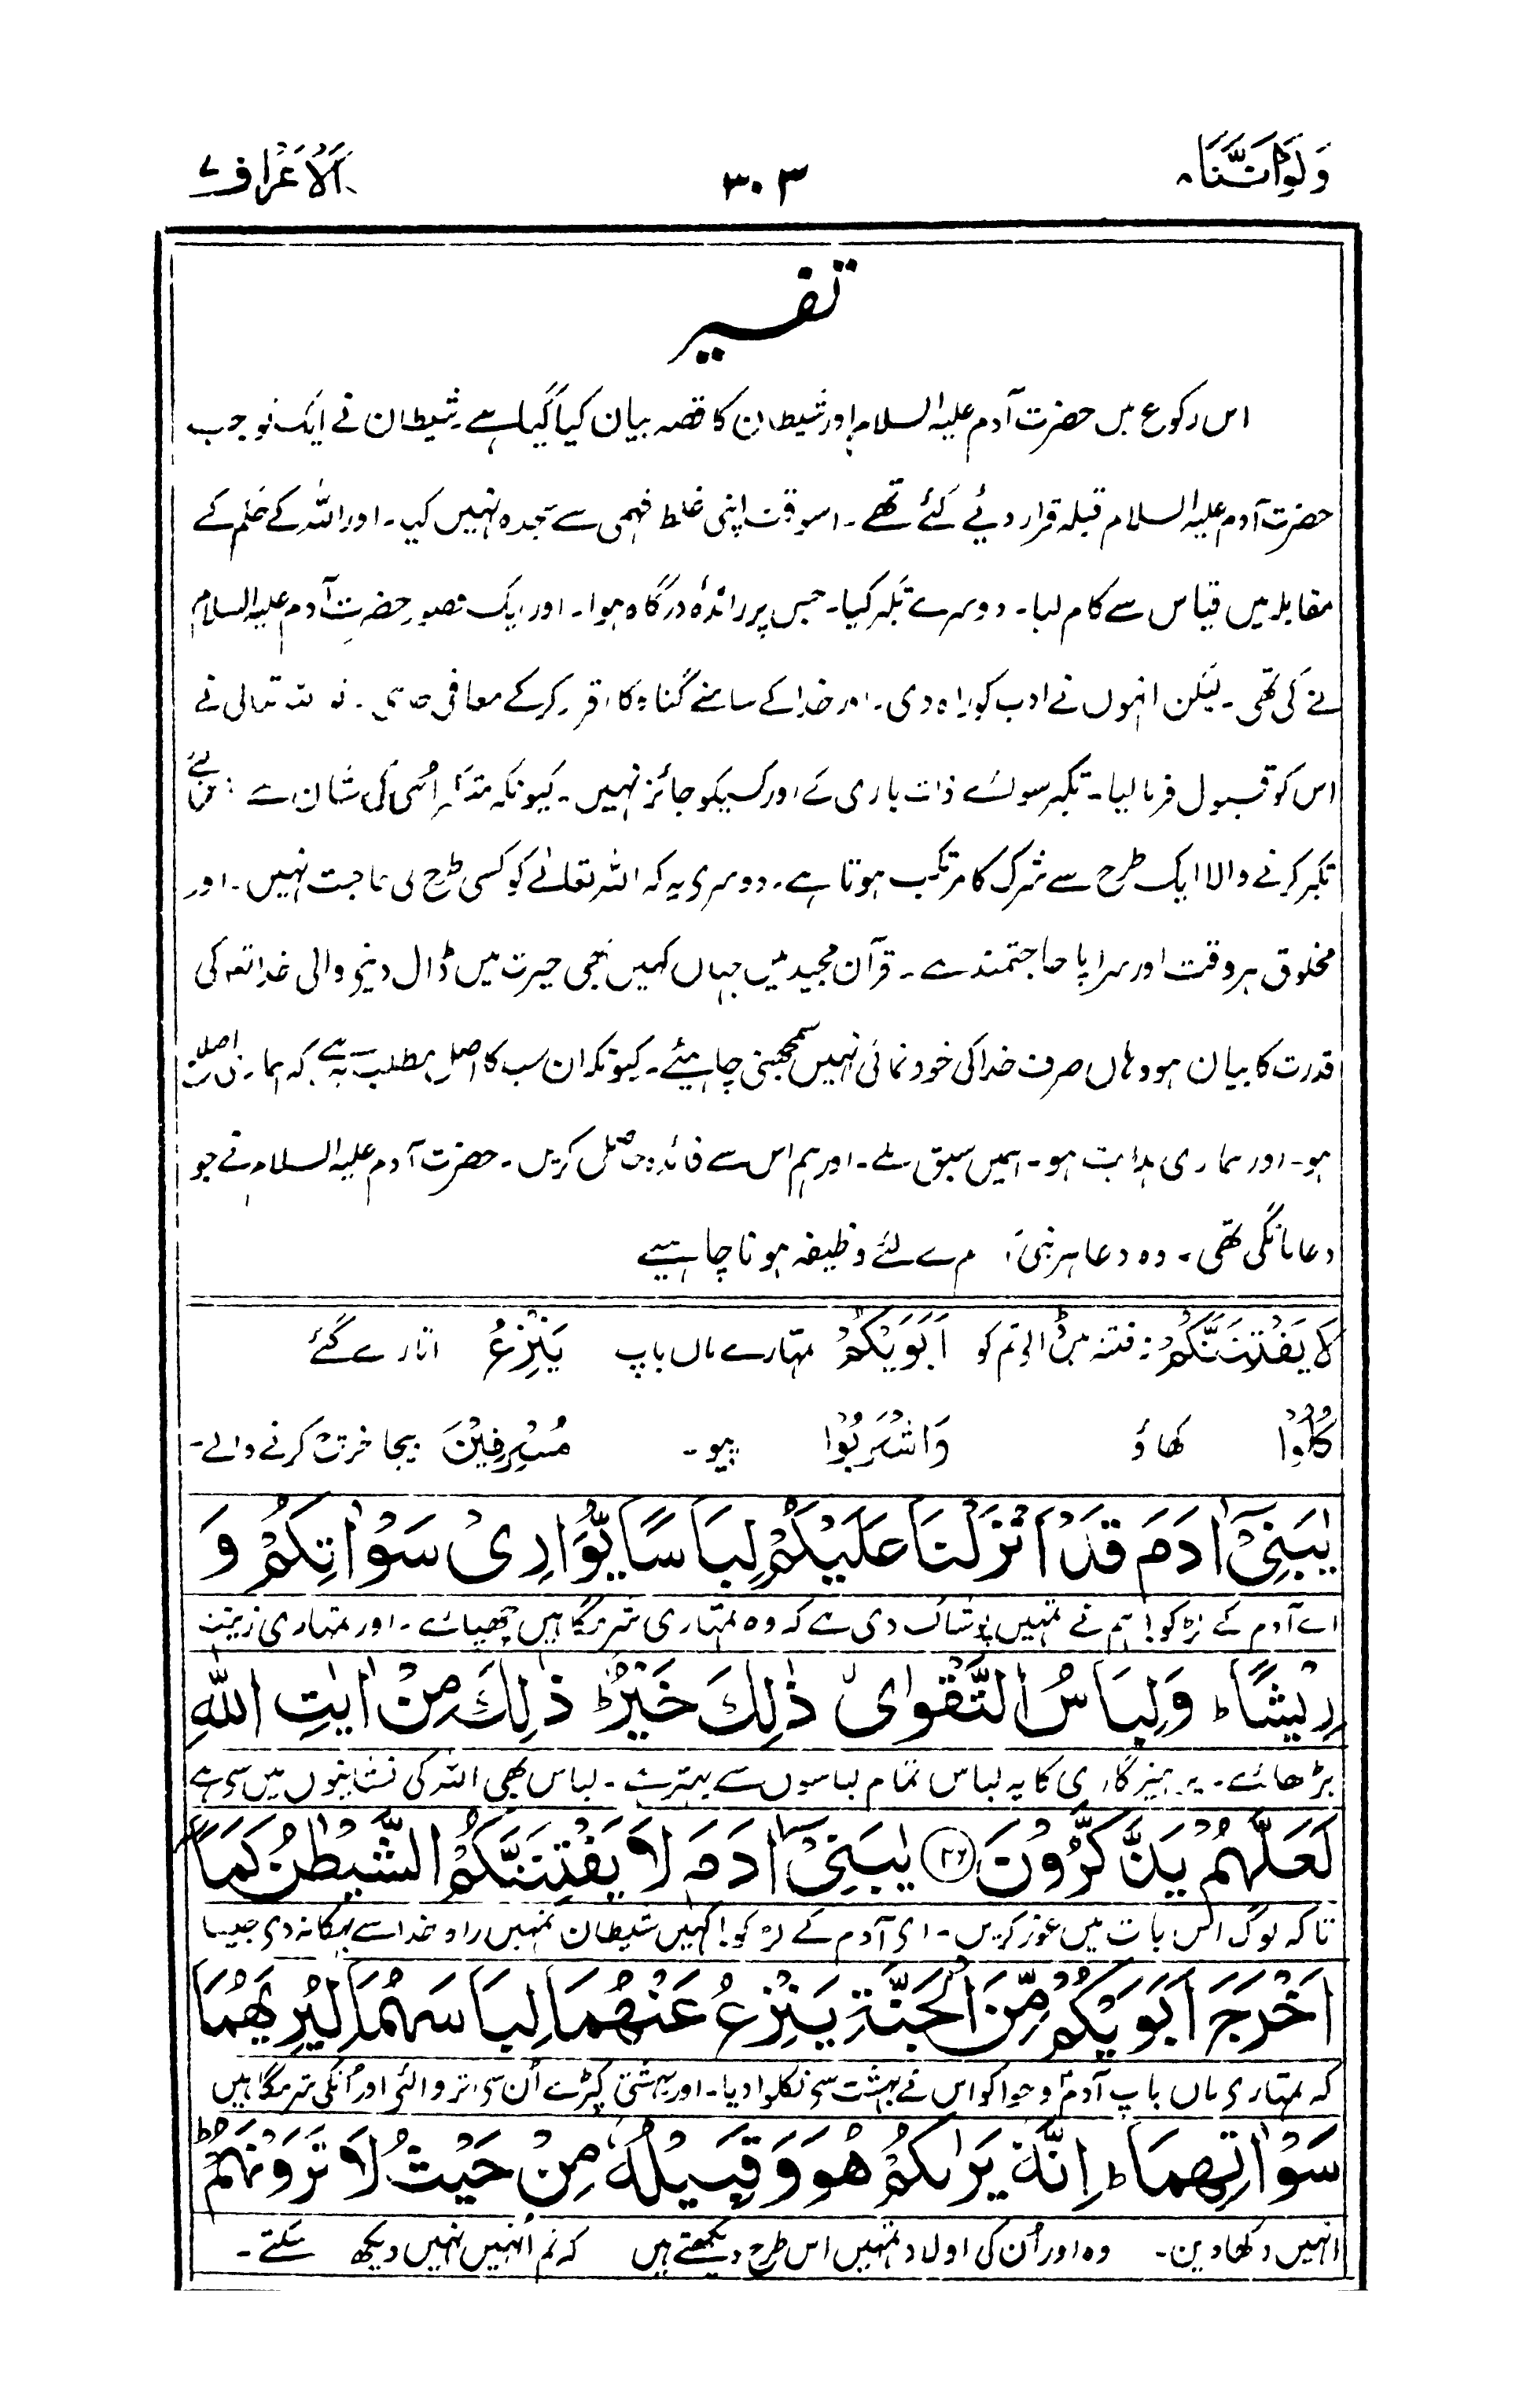 وَلَوْاَنَّنَا ۸
۳۰۳
اَلْاَعْرَاف ۷
تفسیر
اس رکوع میں حضرت آدم علیہ السلام اور شیطان کا قصہ بیان کیا گیا ہے شیطان نے ایک تو جب
حضرت آدم علیہ السلام قبلہ قرار دیئے گئے تھے۔ اسوقت اپنی غلط فہمی سے سجدہ نہیں کیا۔ اور اللہ کے حکم کے
مقابلہ میں قیاس سے کام لیا۔ دوسرے تکبر کیا۔ جس پر راندۂ درگاہ ہوا۔ اور ایک قصور حضرت آدم علیہ السلام
نے کی تھی۔ لیکن انہوں نے ادب کو راہ دی۔ اور خدا کے سامنے گناہ کا اقرار کرکے معافی چاہی۔ تو اللہ تعالی نے
اس کو قبول فرمالیا۔ تکبر سوائے ذات باری کے اور کسیکو جائز نہیں۔ کیونکہ تکبر اُسی کی شان ہے
تکبر کرنے والا ایک طرح سے شرک کا مرتکب ہوتا ہے۔ دوسری یہ کہ اللہ تعالےٰ کو کسی طرح کی حاجت نہیں۔ اور
مخلوق ہر وقت اور سراپا حاجتمند ہے۔ قرآن مجید میں جہاں کہیں بھی حیرت میں ڈال دینے والی خدا تعہ کی
قدرت کا بیان ہو وہاں صرف خدا کی خود نمائی نہیں سمجھنی چاہیئے۔ کیونکہ ان سب کا اصل مطلب یہ ہے کہ ہماری اصلاح
ہو۔ اور ہماری ہدایت ہو۔ ہمیں سبق ملے۔ اور ہم اس سے فائدہ حاصل کریں۔ حضرت آدم علیہ السلام نے جو
دعا مانگی تھی۔ وہ دعا ہر بنی آدم کے لئے وظیفہ ہونا چاہیے
لَا يَفْتِنَنَّكُمْ: فتنہ میں ڈالے تم کو اَبَوَيْكُمْ تمہارے ماں باپ يَنْزِعُ اتارے گئے
كُلُوْا کھاؤ وَاشْرَبُوْا پیو۔ مُسْرِفِيْنَ بیجا خرچ کرنے والے۔
يٰبَنِىْٓ اٰدَمَ قَدْ اَنْزَلْنَا عَلَيْكُمْ لِبَاسًا يُّوَارِىْ سَوْاٰتِكُمْ وَ
اے آدم کے لڑکو! ہم نے تمہیں پوشاک دی ہے کہ وہ تمہاری شرمگاہیں چھپائے۔ اور تمہاری زینت
رِيْشًا ط وَلِبَاسُ التَّقْوٰى ۙ ذٰلِكَ خَيْرٌ ط ذٰلِكَ مِنْ اٰيٰتِ اللّٰهِ
بڑھائے۔ پرہیزگاری کا یہ لباس تمام لباسوں سے بہتر ہے۔ لباس بھی اللہ کی نشانیوں میں سی ہے
لَعَلَّهُمْ يَذَّكَّرُوْنَ ۝۲۶ يٰبَنِىْٓ اٰدَمَ لَا يَفْتِنَنَّكُمُ الشَّيْطٰنُ كَمَآ
تاکہ لوگ اس بات میں غور کریں۔ ای آدم کے لڑکو! کہیں شیطان تمہیں راہ خدا سے بہکا نہ دی جیسا
اَخْرَجَ اَبَوَيْكُمْ مِّنَ الْجَنَّةِ يَنْزِعُ عَنْهُمَا لِبَاسَهُمَا لِيُرِيَهُمَا
کہ تمہاری ماں باپ آدم و حوا کو اس نے بہشت سی نکلوا دیا۔ اور بہشتی کپڑے اُن سی اتروائی اور اُنکی شرمگاہیں
سَوْاٰتِهِمَا ط اِنَّهٗ يَرٰىكُمْ هُوَ وَقَبِيْلُهٗ مِنْ حَيْثُ لَا تَرَوْنَهُمْ ط
انہیں دکھا دیں۔ وہ اور اُن کی اولاد تمہیں اس طرح دیکھتے ہیں کہ تم اُنہیں نہیں دیکھ سکتے۔